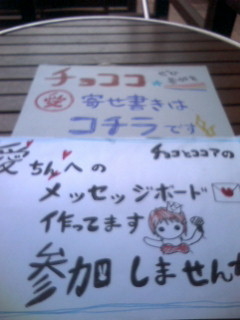 チョココ
愛 寄せ書きは
コチラです
愛ちんへの
チョコとココアの
メッセッジボード
作ってます
参加しませんか